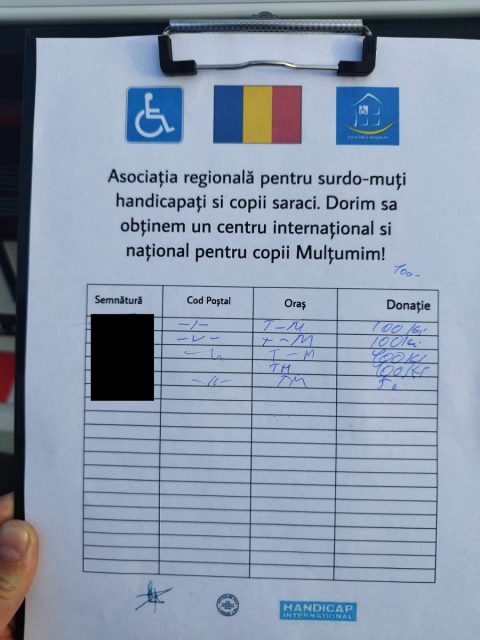 Asociația regională pentru surdo-muți
handicapați si copii saraci. Dorim sa
obținem un centru internațional si
național pentru copii Mulțumim!
100-
Semnătură Cod Poștal Oraș Donație
T-M 100 lei
T-M 100 lei
T-M
TM
TM
HANDICAP
INTERNATIONAL